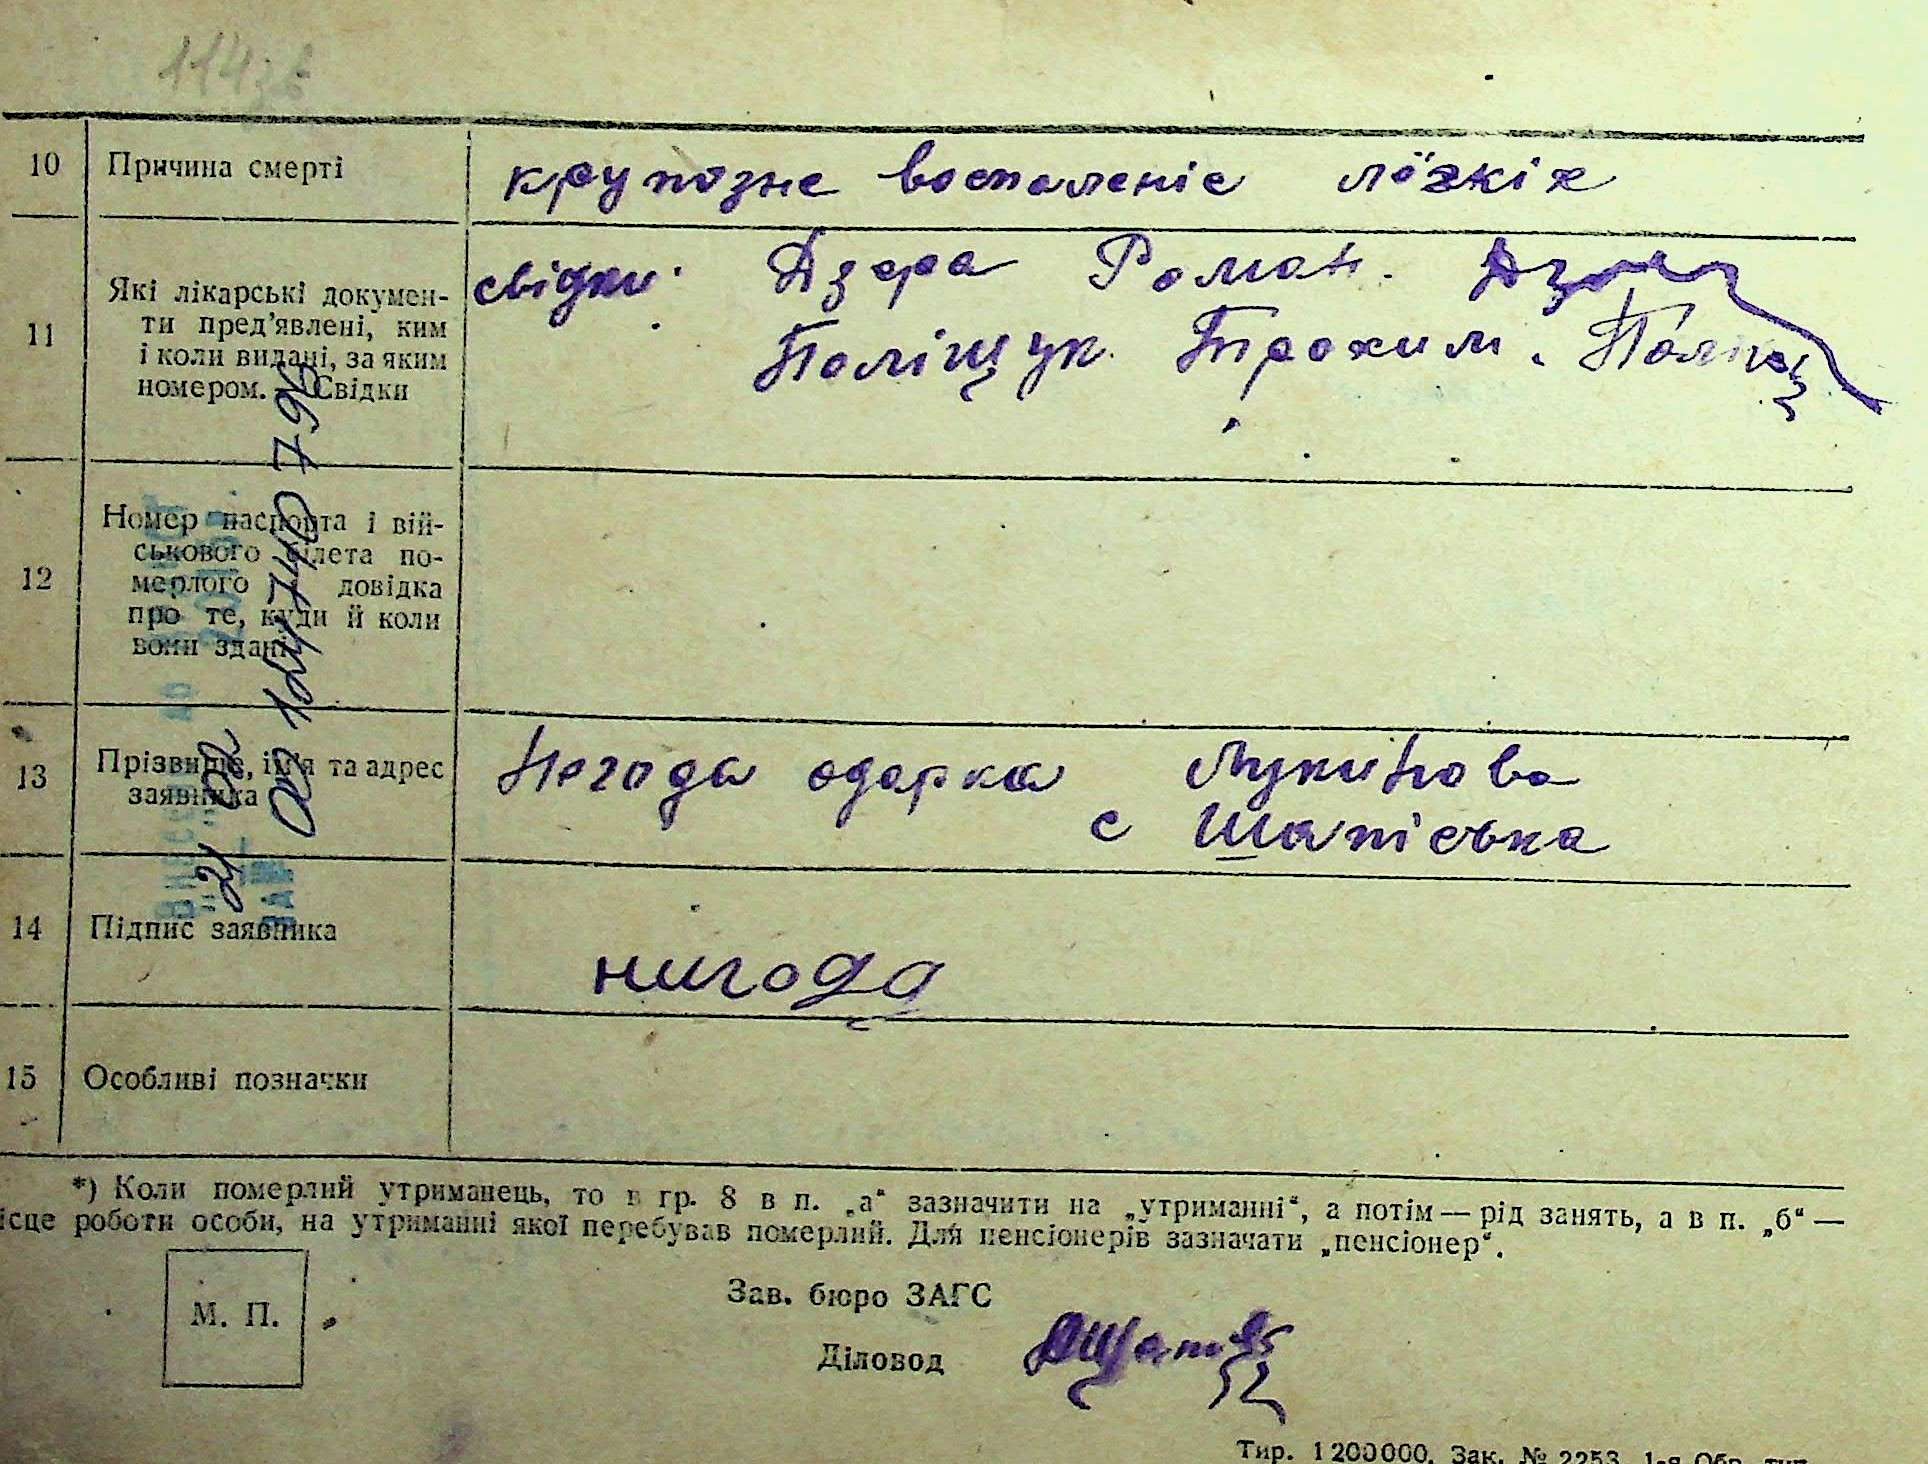 114зв
10 Причина смерті крупозне воспаленіє лёзкіх
11 Які лікарські докумен-
ти пред'явлені, ким
і коли видані, за яким
номером. Свідки
свідки: Дзера Роман.
Поліщук Трохим.
12 Номер паспорта і вій-
ськового білета по-
мерлого довідка
про те, куди й коли
вони здані
13 Прізвище, ім'я та адрес
заявника
Негода одарка Лукинова
с Шапієвка
14 Підпис заявника
нигода
15 Особливі позначки
*) Коли померлий утриманець, то в гр. 8 в п. „а“ зазначити на „утриманні“, а потім — рід занять, а в п. „б“ —
ісце роботи особи, на утриманні якої перебував померлий. Для пенсіонерів зазначати „пенсіонер“.
М. П.
Зав. бюро ЗАГС
Діловод
Тир. 1200000. Зак. № 2253. 1-я Обр. тип